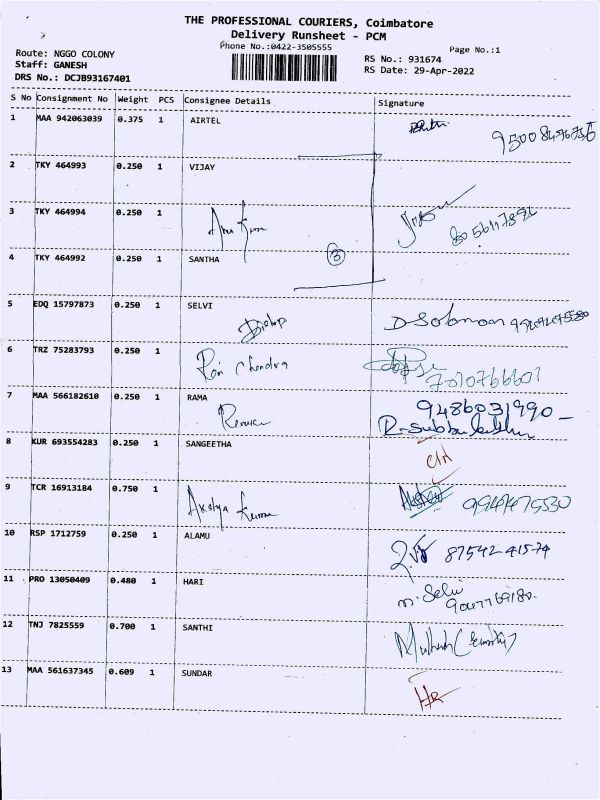 THE PROFESSIONAL COURIERS, Coimbatore
Delivery Runsheet - PCM
Phone No.:0422-3505555
Page No.:1
Route: NGGO COLONY
Staff: GANESH
DRS No.: DCJB93167401
RS No.: 931674
RS Date: 29-Apr-2022
S No Consignment No Weight PCS Consignee Details Signature
1 MAA 942063039 0.375 1 AIRTEL
2 TKY 464993 0.250 1 VIJAY
3 TKY 464994 0.250 1
Kumar
4 TKY 464992 0.250 1 SANTHA 3
5 EDQ 15797873 0.250 1 SELVI
Dilip D Solomon
6 TRZ 75283793 0.250 1
Ram Chandra 7010766601
7 MAA 566182610 0.250 1 RAMA 9486031990
8 KUR 693554283 0.250 1 SANGEETHA
9 TCR 16913184 0.750 1
Akshya Kumar
10 RSP 1712759 0.250 1 ALAMU 87542-41574
11 PRO 13050409 0.480 1 HARI
12 TNJ 7825559 0.700 1 SANTHI
13 MAA 561637345 0.609 1 SUNDAR